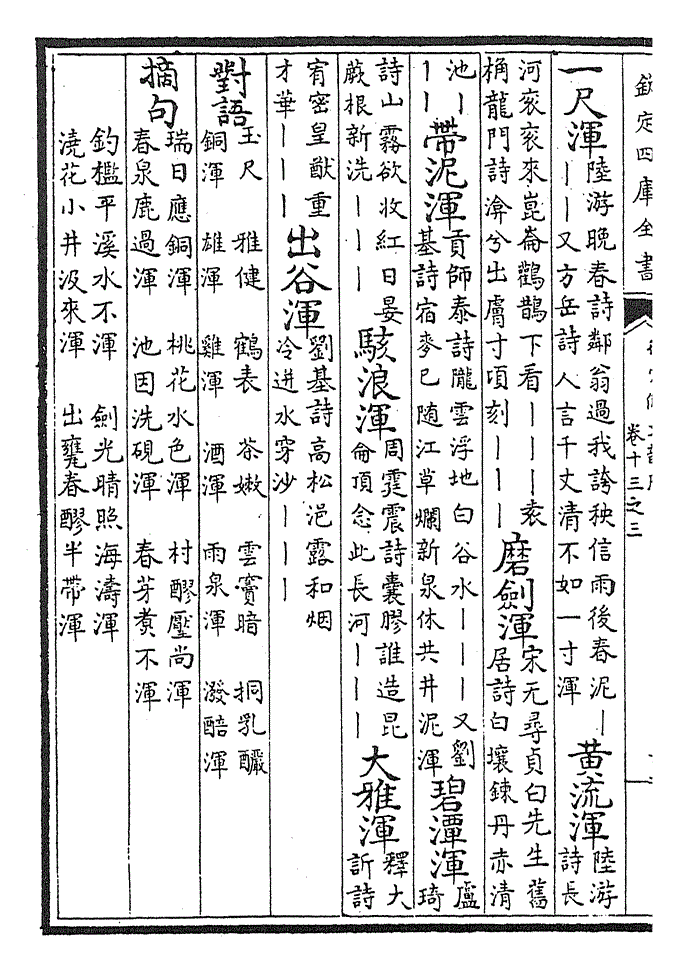 欽定四庫全書
卷十三之三
一尺渾 陸游晚春詩鄰翁過我誇秧信雨後春泥｜｜｜又方岳詩人言千丈清不如一寸渾 黄流渾 陸游詩長
河衮衮來崑崙鸛鵲下看｜｜｜袁桷龍門詩渰兮出膚寸頃刻｜｜｜ 磨劍渾 宋无尋貞白先生舊居詩白壤鍊丹赤清
池｜｜｜ 帶泥渾 貢師泰詩隴雲浮地白谷水｜｜｜又劉基詩宿麥已随江草爛新泉休共井泥渾 碧潭渾 盧琦
詩山霧欲收紅日晏蕨根新洗｜｜｜ 駭浪渾 周霆震詩囊膠誰造昆侖頂念此長河｜｜｜ 大雅渾 釋大訢詩
宥密皇猷重才華｜｜｜ 出谷渾 劉基詩高松浥露和烟冷迸水穿沙｜｜｜
對語 玉尺 銅渾 雅健 雄渾 鶴表 雞渾 茶嫩 酒渾 雲竇暗 雨泉渾 挏乳釅 潑醅渾
摘句 瑞日應銅渾 春泉鹿過渾 桃花水色渾 池因洗硯渾 村醪壓尚渾 春芽煑不渾
釣檻平溪水不渾 澆花小井汲來渾 劍光晴照海濤渾 出甕春醪半帶渾